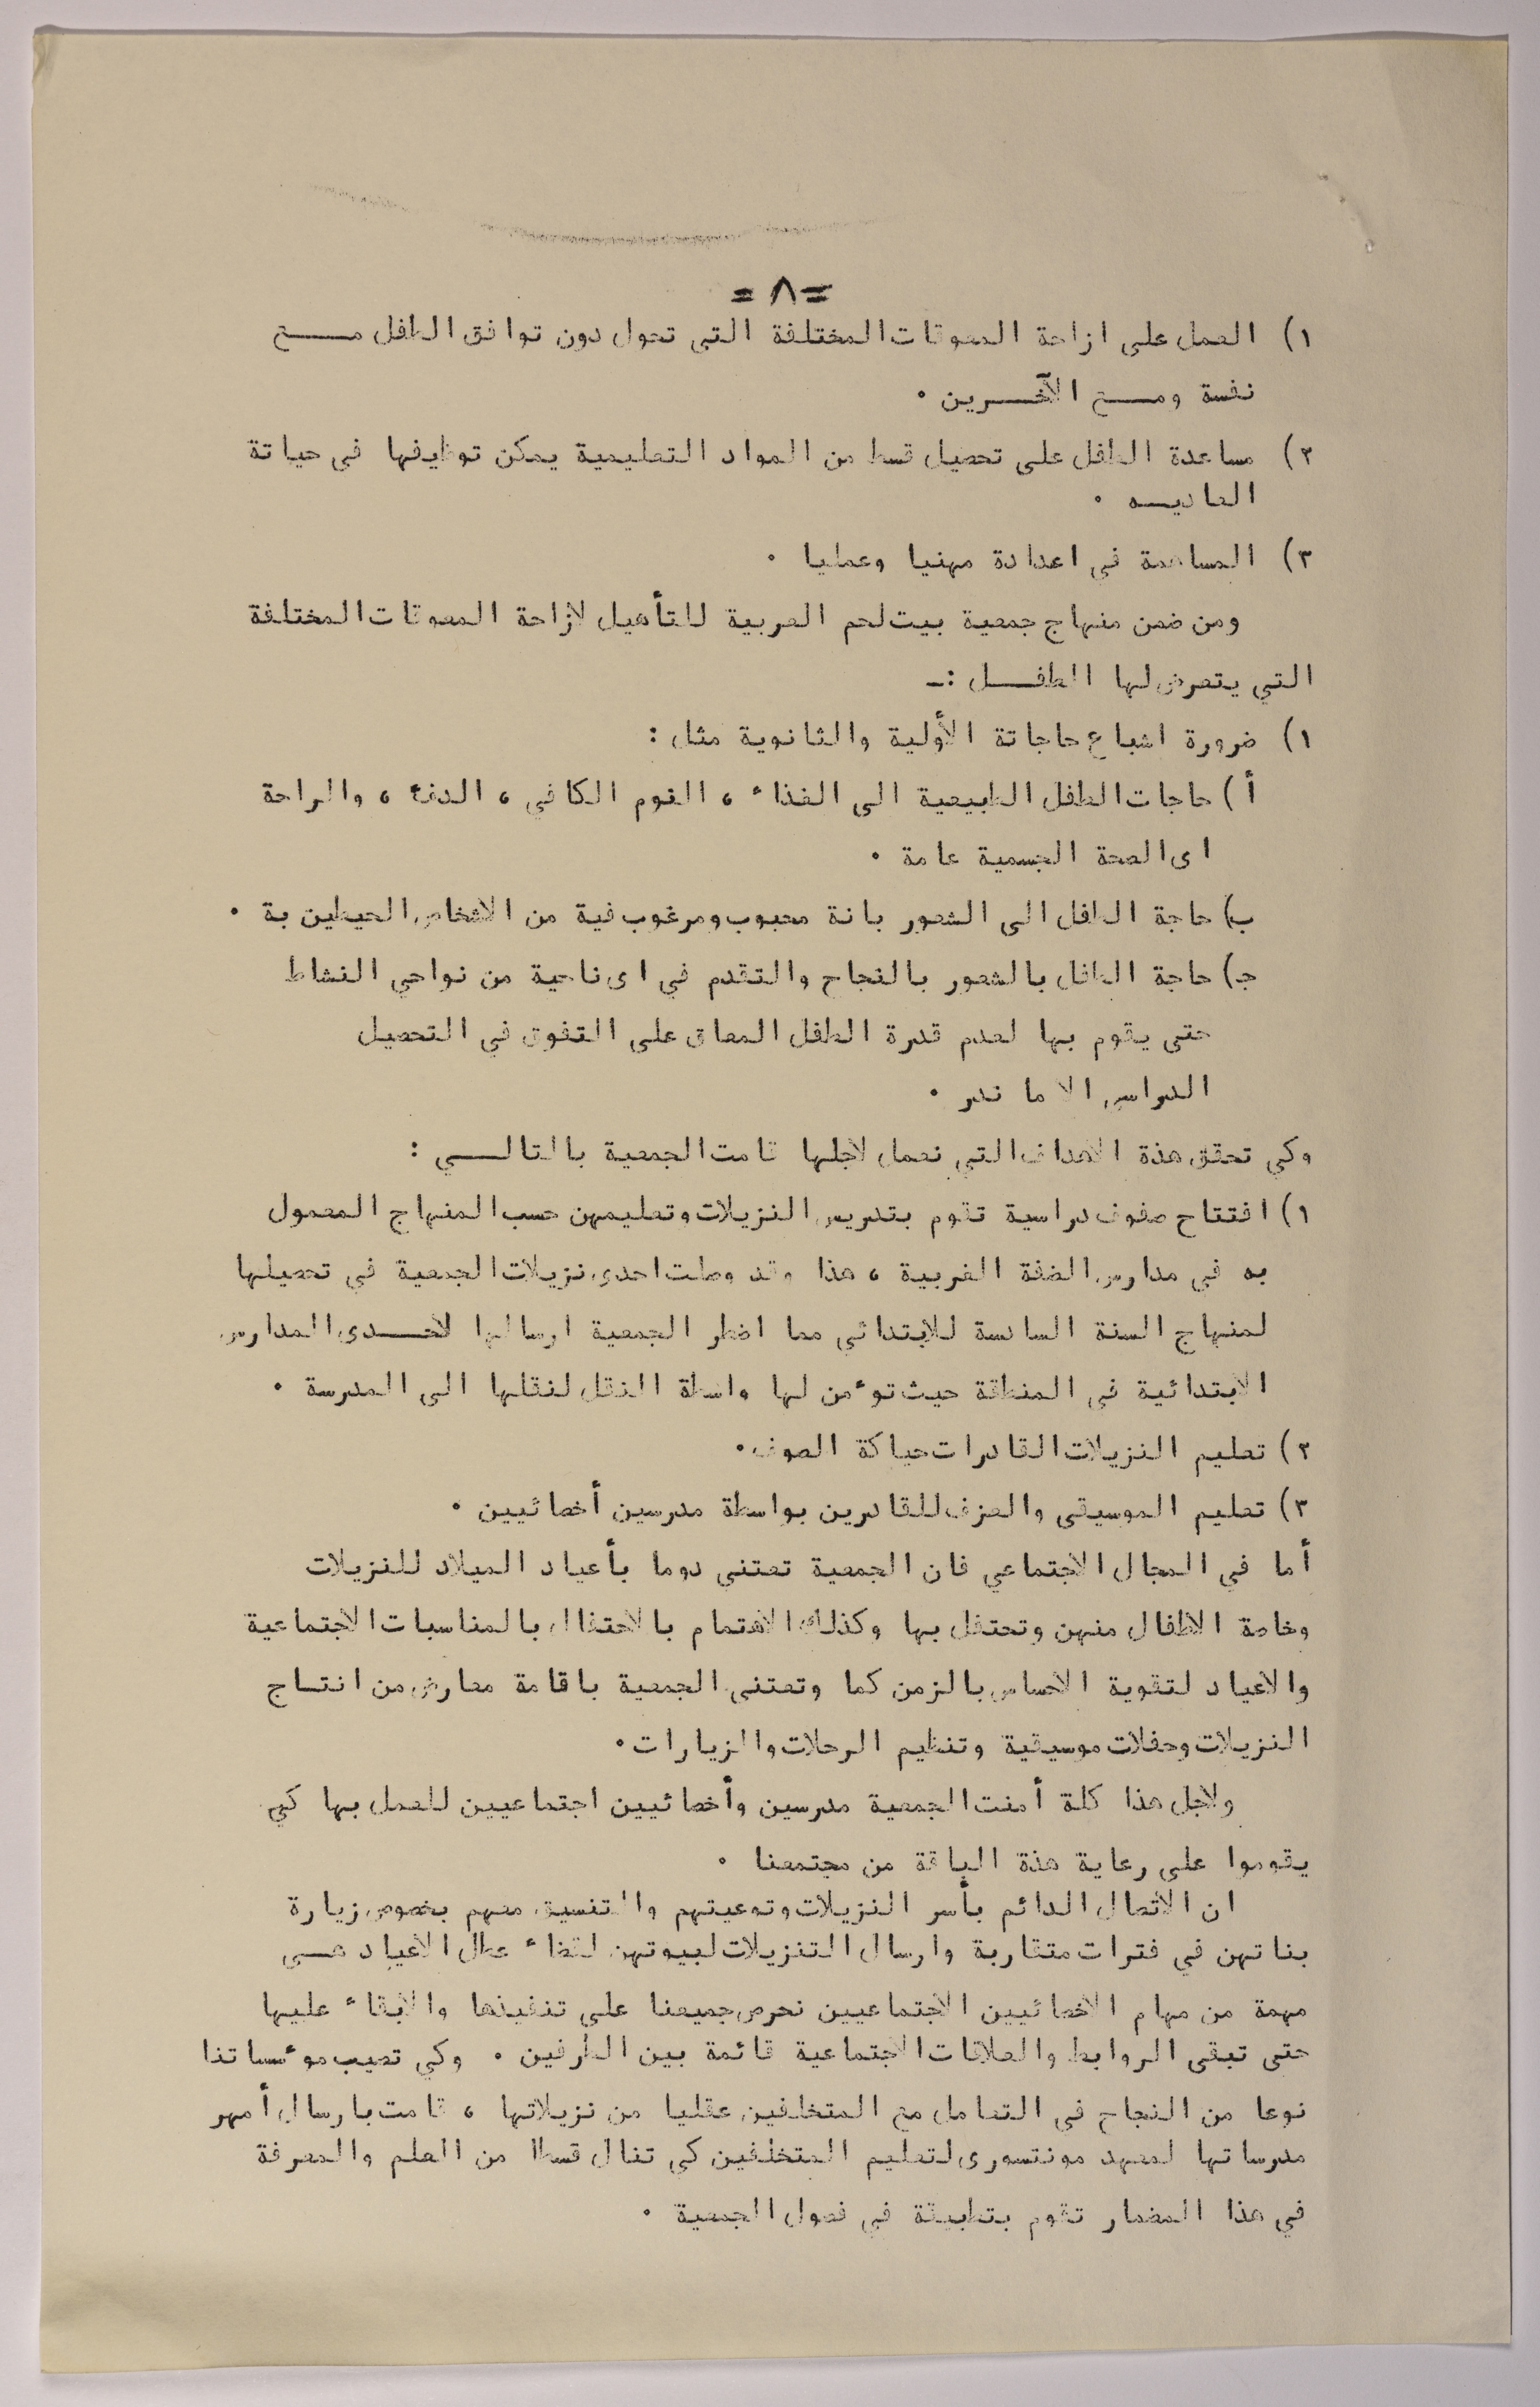 = ٨ =
١) العمل على ازاحة المعوقات المختلفة التي تحول دون توافق الطفل مـــع
نفسة ومـــع الآخـــرين ٠
٢) مساعدة الطفل على تحصيل قسط من المواد التعليمية يمكن توظيفها في حياتة
العاديـــه ٠
٣) المساهمة في اعدادة مهنيا وعمليا ٠
ومن ضمن منهاج جمعية بيت لحم العربية للتأهيل لازاحة المعوقات المختلفة
التي يتعرض لها الطفـــل :ـ
١) ضرورة اشباع حاجاتة الأولية والثانوية مثل :
أ ) حاجات الطفل الطبيعية الى الغذاء ، النوم الكافي ، الدفء ، والراحة
اى الصحة الجسمية عامة ٠
ب) حاجة الطفل الى الشعور بانة محبوب ومرغوب فية من الاشخاص الحيطين بة ٠
جـ) حاجة الطفل بالشعور بالنجاح والتقدم في اى ناحية من نواحي النشاط
حتى يقوم بها لعدم قدرة الطفل المعاق على التفوق في التحصيل
الدراسي الا ما ندر ٠
وكي تحقق هذة الاهداف التي نعمل لاجلها قامت الجمعية بالتالـــي :
١) افتتاح صفوف دراسية تقوم بتدريس النزيلات وتعليمهن حسب المنهاج المعمول
به في مدارس الضفة الغربية ، هذا وقد وصلت احدى نزيلات الجمعية في تحصيلها
لمنهاج السنة السادسة للابتدائي مما اضطر الجمعية ارسالها لاحـــدى المدارس
الابتدائية في المنطقة حيث توءمن لها واسطة النقل لنقلها الى المدرسة ٠
٢) تعليم النزيلات القادرات حياكة الصوف ٠
٣) تعليم الموسيقى والعزف للقادرين بواسطة مدرسين أخصائيين ٠
أما في المجال الاجتماعي فان الجمعية تعتني دوما بأعياد الميلاد للنزيلات
وخاصة الاطفال منهن وتحتفل بها وكذلك الاهتمام بالاحتفال بالمناسبات الاجتماعية
والاعياد لتقوية الاحساس بالزمن كما وتعتنى الجمعية باقامة معارض من انتـاج
النزيلات وحفلات موسيقية وتنظيم الرحلات والزيارات ٠
ولاجل هذا كلة أمنت الجمعية مدرسين وأخصائيين اجتماعيين للعمل بها كي
يقوموا على رعاية هذة الباقة من مجتمعنا ٠
ان الاتصال الدائم بأسر النزيلات وتوعيتهم والتنسيق معهم بخصوص زيارة
بناتهن في فترات متقاربة وارسال التنزيلات لبيوتهن لقضاء عطل الاعياد هـــى
مهمة من مهام الاخصائيين الاجتماعيين نحرص جميعنا على تنفيذها والابقاء عليها
حتى تبقى الروابط والعلاقات الاجتماعية قائمة بين الطرفين ٠ وكي تصيب موءسساتنا
نوعا من النجاح في التعامل مع المتخلفين عقليا من نزيلاتها ، قامت بارسال أمهر
مدرساتها لمعهد مونتسورى لتعليم المتخلفين كي تنال قسطا من العلم والمعرفة
في هذا المضمار تقوم بتطبيقة في فصول الجمعية ٠